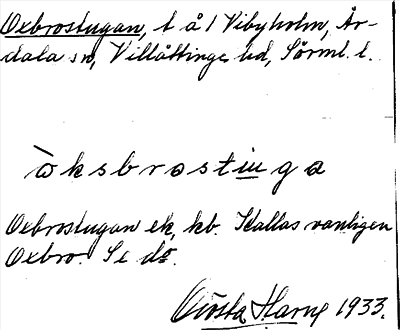 Oxbrostugan, t å 1 Vibyholm, År-
dala sn, Villåttinge hd, Sörml. l.
òksbrostuga
Oxbrostugan ek, kb. Kallas vanligen
Oxbro. Se do.
Gösta Harne 1933.